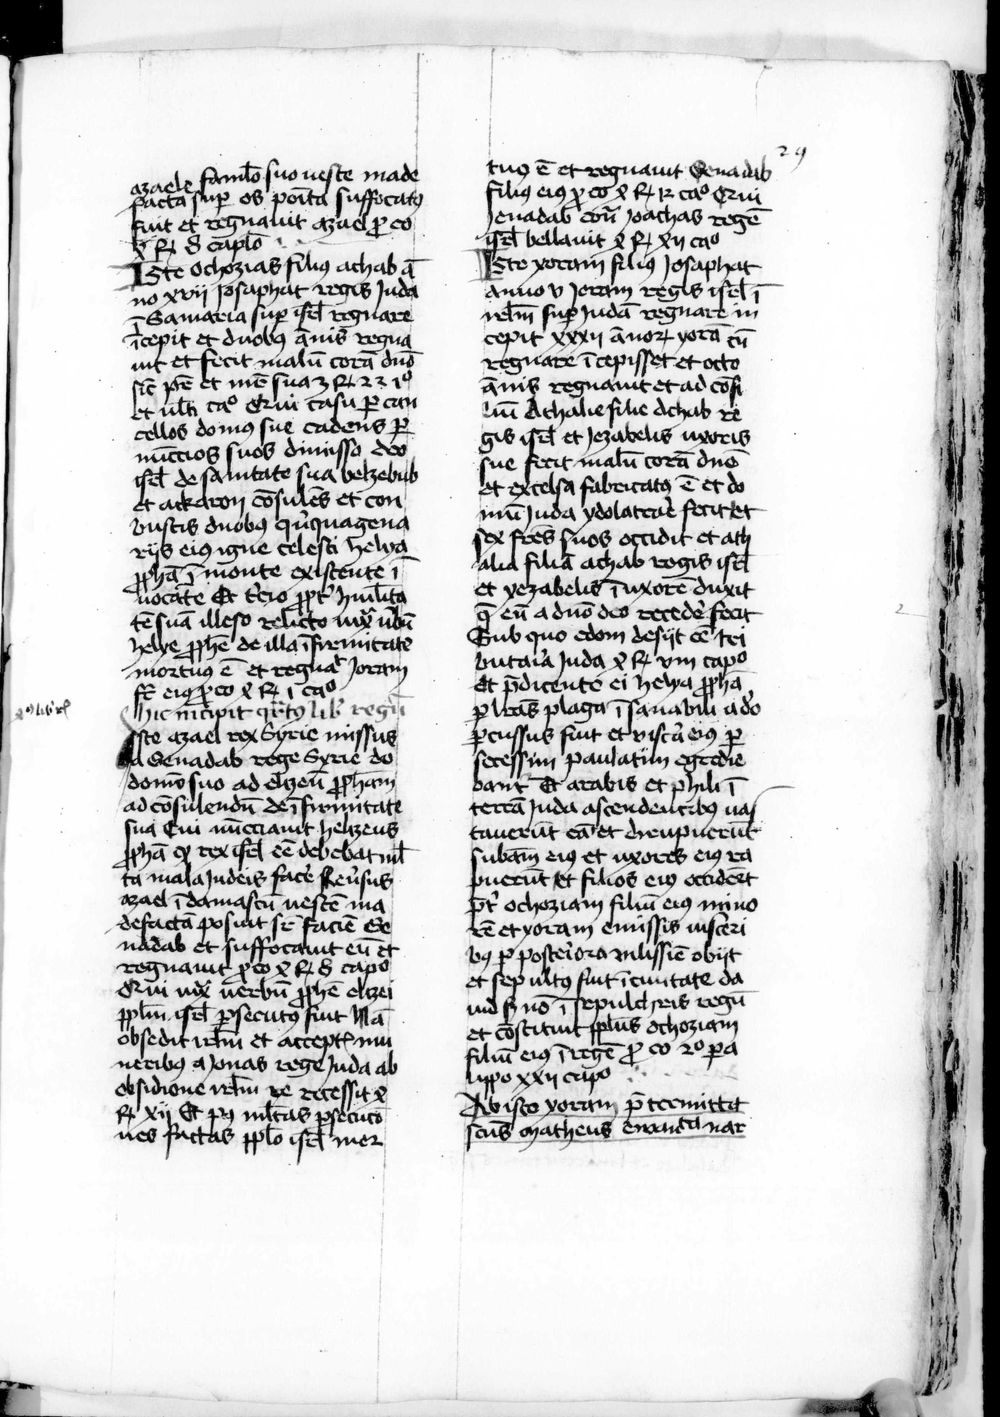 29
azaele famĺo suo ueste made
facta sup̄ os poīta suffocatꝰ
fuit et regnauit azael ꝓ eo
Iste ochozias filius achab ā
no xvij Josaphat regis Juda
ī Samaria sup̄ isrl̄ regnare
īcepit et duobus ānis regna
uit et fecit malū corā dn̄o
sic̄ pr̄ et mr̄ sua
et ult̄i ca⁰ Qui casu ꝑ can
cellos domus sue cadens ꝑ
nūccios suos dimisso deo
isrl̄ de sanitate sua belzebub
et ackaron cōsulēs et con
bustis duobus q̄nquagena
rijs eius igne celesti helya
ꝓph̄a ī monte existente ī
uocāte Et t̄cio ꝓpt̄ humil̄ita
tē suā illeso relicto iux̄ ub̄ū
helye ꝓph̄e de illa īfirmitate
mortuus ē et regnat Joram
fr̄ eiꝰ ꝓ eo
hic incipit qr̄tus lib̄ regū
Iste azael rex Syrie missus
a Benadab rege Syrie do
domō suo ad elyzeū ꝓph̄am
ad cōsulendū de īfirmitate
sua Cui nūcciauit helizeus
ꝓph̄a qꝫ rex isrl̄ eē debebat ml̄
ta mala Judeis face Reūsus
azael ī damascū uestē ma
defactā posuit sr̄ faciē Be
nadab et suffocauit eū et
regnauit ꝓ eo
Qui iux̄ uerbū ꝓph̄e elizei
ppl̄m isrl̄ ꝑsecutꝰ fuit Nā
obsedit irl̄m et accept̄ mu
neribus a Jonas rege Juda ab
obsidione irl̄m re recessit
xij Et pꝰ ml̄tas ꝑsecutō
nes factas ppl̄o isrl̄ mor
tuꝰ ē et regnauit Benadab
filius eiꝰ ꝓ eo
Benadab cont̄ Joachas regē
isrl̄ bellauit xij ca⁰
Iste yoram filius Josaphat
anno v Joram regis isrl̄ ī
irl̄m sup̄ Judā regnare in
cepit xxxij ānoꝝ yorā cū
regnare īcepisset et octo
ānis regnauit et ad cōsi
liū Athalie filie Achab re
gis isrl̄ et Jezabelis uxoris
sue fecit malū corā dn̄o
et excelsa fabricatꝰ ē et do
mū Juda ydolatrar̄e fecit Et
sex fr̄es suos occidit et ath
alia filiā achab regis isrl̄
et yezabelis ī uxorē duxit
q̄ eū a dn̄o deo recedē fecit
Sub quo edom desijt eē tri
butar̄ia Juda viii cap⁰
Et p̄dicente ei helya ꝓph̄a
ꝑ lr̄as plaga īsanabili a do
ꝑcussus fuit et viscā eiꝰ ꝑ
secessum paulatim egredie
bant̄ Et arabis et phili ī
terrā Juda ascendentibꝰ uas
tauerūt eā et diripuerūt
subam̄ eiꝰ et uxores eiꝰ ra
puerūt et filios eiꝰ occiderūt
pt̄ ochoziam filiū eiꝰ mino
rē et yoram emissis uisceri
bꝰ ꝑ posteriora milissie obijt
et sepultꝰ fuit ī ciuitate da
uid sꝫ nō ī sepulchris regū
et cōstituit ppl̄us ochoziam
filiū eiꝰ ī regē ꝓ eo 2⁰ ꝑa
lipo xxii cap⁰
Ab isto yoram p̄termittit
scūs matheus enar